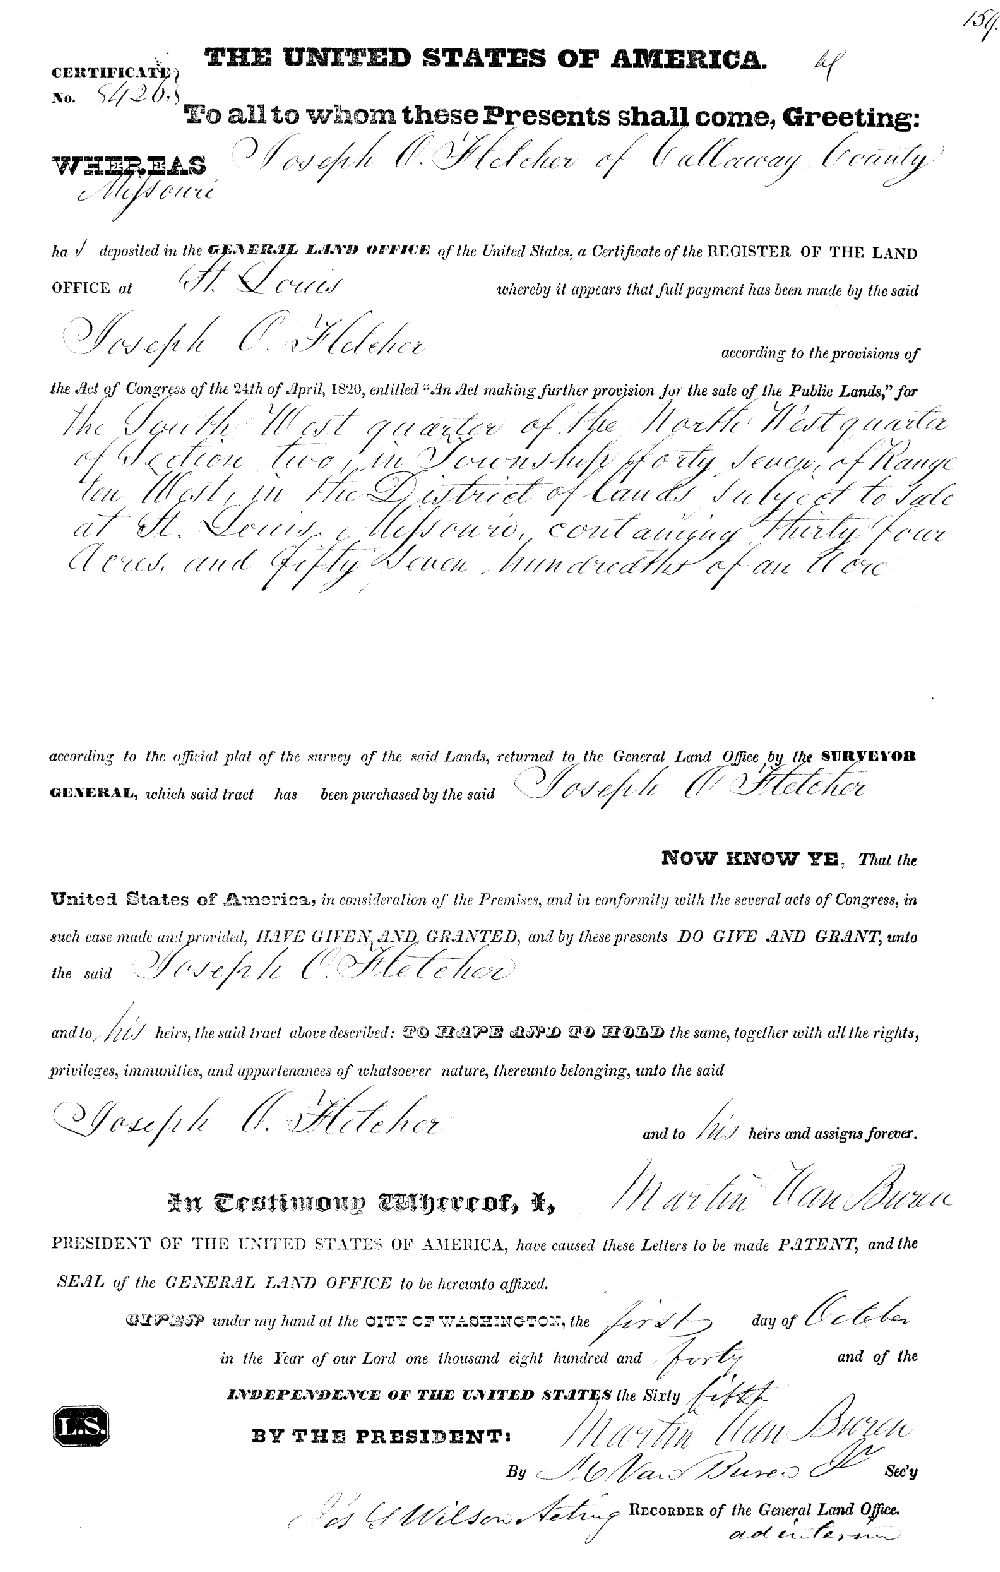 159.
THE UNITED STATES OF AMERICA.
CERTIFICATE
No. 8426
To all to whom these Presents shall come, Greeting:
WHEREAS Joseph O. Fletcher of Callaway County
Missouri
ha s deposited in the GENERAL LAND OFFICE of the United States, a Certificate of the REGISTER OF THE LAND
OFFICE at St. Louis whereby it appears that full payment has been made by the said
Joseph O. Fletcher according to the provisions of
the Act of Congress of the 24th of April, 1820, entitled "An Act making further provision for the sale of the Public Lands," for
the South West quarter of the North West quarter
of Section two, in Township forty seven, of Range
ten West, in the District of Lands subject to sale
at St. Louis, Missouri, containing thirty four
Acres, and fifty seven hundredths of an Acre
according to the official plat of the survey of the said Lands, returned to the General Land Office by the SURVEYOR
GENERAL, which said tract has been purchased by the said Joseph O Fletcher
NOW KNOW YE, That the
United States of America, in consideration of the Premises, and in conformity with the several acts of Congress, in
such case made and provided, HAVE GIVEN AND GRANTED, and by these presents DO GIVE AND GRANT, unto
the said Joseph O. Fletcher
and to his heirs, the said tract above described: TO HAVE AND TO HOLD the same, together with all the rights,
privileges, immunities, and appurtenances of whatsoever nature, thereunto belonging, unto the said
Joseph O. Fletcher and to his heirs and assigns forever.
In Testimony Whereof, I, Martin Van Buren
PRESIDENT OF THE UNITED STATES OF AMERICA, have caused these Letters to be made PATENT, and the
SEAL of the GENERAL LAND OFFICE to be hereunto affixed.
GIVEN under my hand at the CITY OF WASHINGTON, the first day of October
in the Year of our Lord one thousand eight hundred and forty and of the
INDEPENDENCE OF THE UNITED STATES the Sixty fifth
L.S.
BY THE PRESIDENT: Martin Van Buren
By M Van Buren Jr Sec'y
Jos. G Wilson Acting RECORDER of the General Land Office.
ad interim